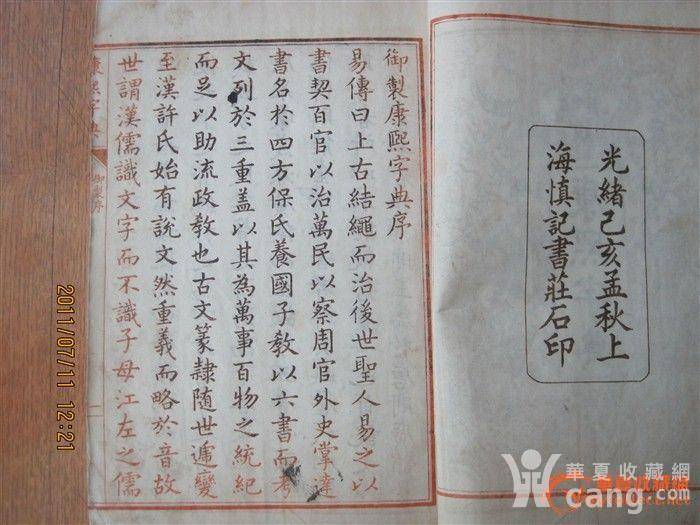 光緒己亥孟秋上
海慎記書莊石印
御製康熙字典序
易傳曰上古結繩而治後世聖人易之以
書契百官以治萬民以察周官外史掌達
書名於四方保氏養國子教以六書而考
文列於三重盖以其為萬事百物之統紀
而足以助流政教也古文篆隸随世遞變
至漢許氏始有說文然重義而略於音故
世謂漢儒識文字而不識子母江左之儒
康熙字典
御製序
一
2011/07/11 12:21
華夏收藏網
cang.com